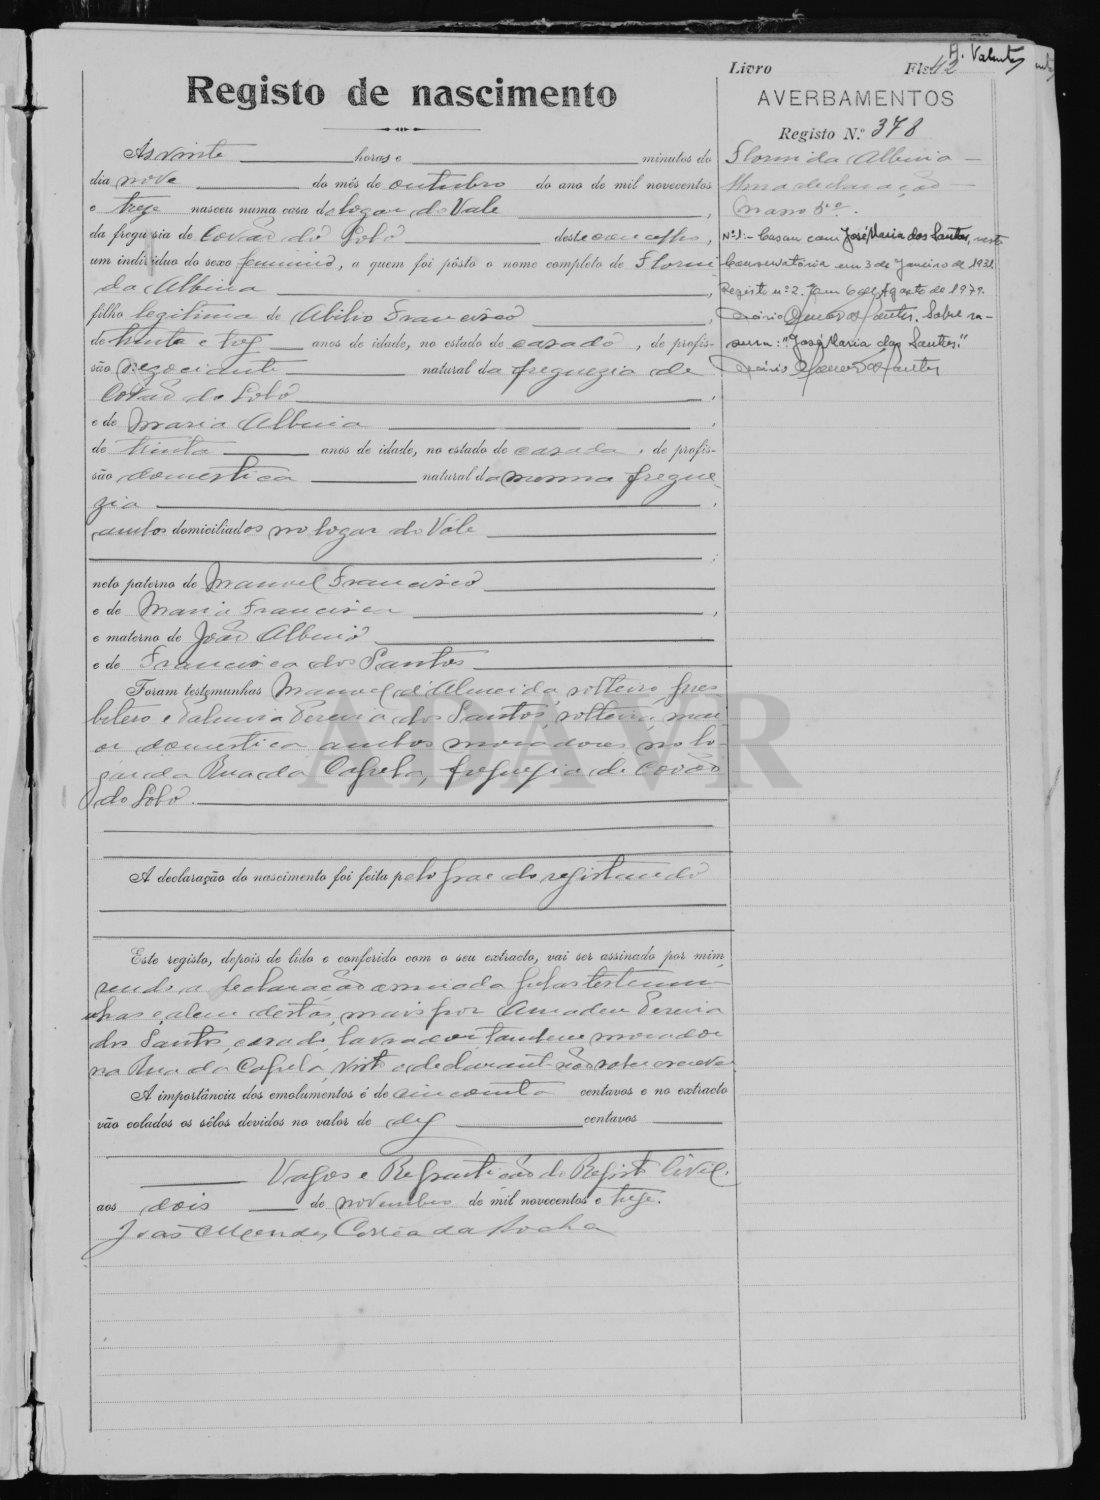 Livro Fls 42
A. Valente
Registo de nascimento
AVERBAMENTOS
Registo N.º 378
Florinda Albina
Uma declaração
Maço 5.º
Nº 1:- Casou com José Maria dos Santos, nesta
Conservatória em 3 de Janeiro de 1931.
Registo nº 2. Em 6 de Agosto de 1979.
Sobre ra-
sura: "José Maria dos Santos."
Ás vinte horas e minutos do
dia nove do mês de outubro do ano de mil novecentos
e treze nasceu numa casa do logar do Vale ,
da freguesia de Covão do Lobo deste concelho,
um indivíduo do sexo feminino, a quem foi pôsto o nome completo de Florin
da Albina ,
filho legitima de Abilio Francisco ,
de trinta e trez anos de idade, no estado de casado, de profis-
são negociante natural da freguezia de
Covão do Lobo ,
e de Maria Albina ,
de trinta anos de idade, no estado de casada, de profis-
são domestica natural da mesma fregue-
zia ,
ambos domiciliados no logar do Vale
;
neto paterno de Manuel Francisco
e de Maria Francisca ,
e materno de João Albino
e de Francisca dos Santos
Foram testemunhas Manuel d'Almeida, solteiro, pres
bitero e Palmira Pereira dos Santos, solteira, mai
or domestica ambos moradores no lo-
gar da Rua da Capela, freguezia de Covão
do Lobo.
A declaração do nascimento foi feita pelo pae do registando
Este registo, depois de lido e conferido com o seu extracto, vai ser assinado por mim,
sendo a declaração assinada pelas testemu-
nhas e, alem destas, mais por Amadeu Pereira
dos Santos, casado, lavrador, tambem morador
na Rua da Capela, visto o declarante não saber escrever
A importância dos emolumentos é de cincoenta centavos e no extracto
vão colados os sêlos devidos no valor de dez centavos
Vagos e Repartição do Registo Civil.
aos dois de novembro de mil novecentos e treze.
João Mendes Corrêa da Rocha
ADAVR